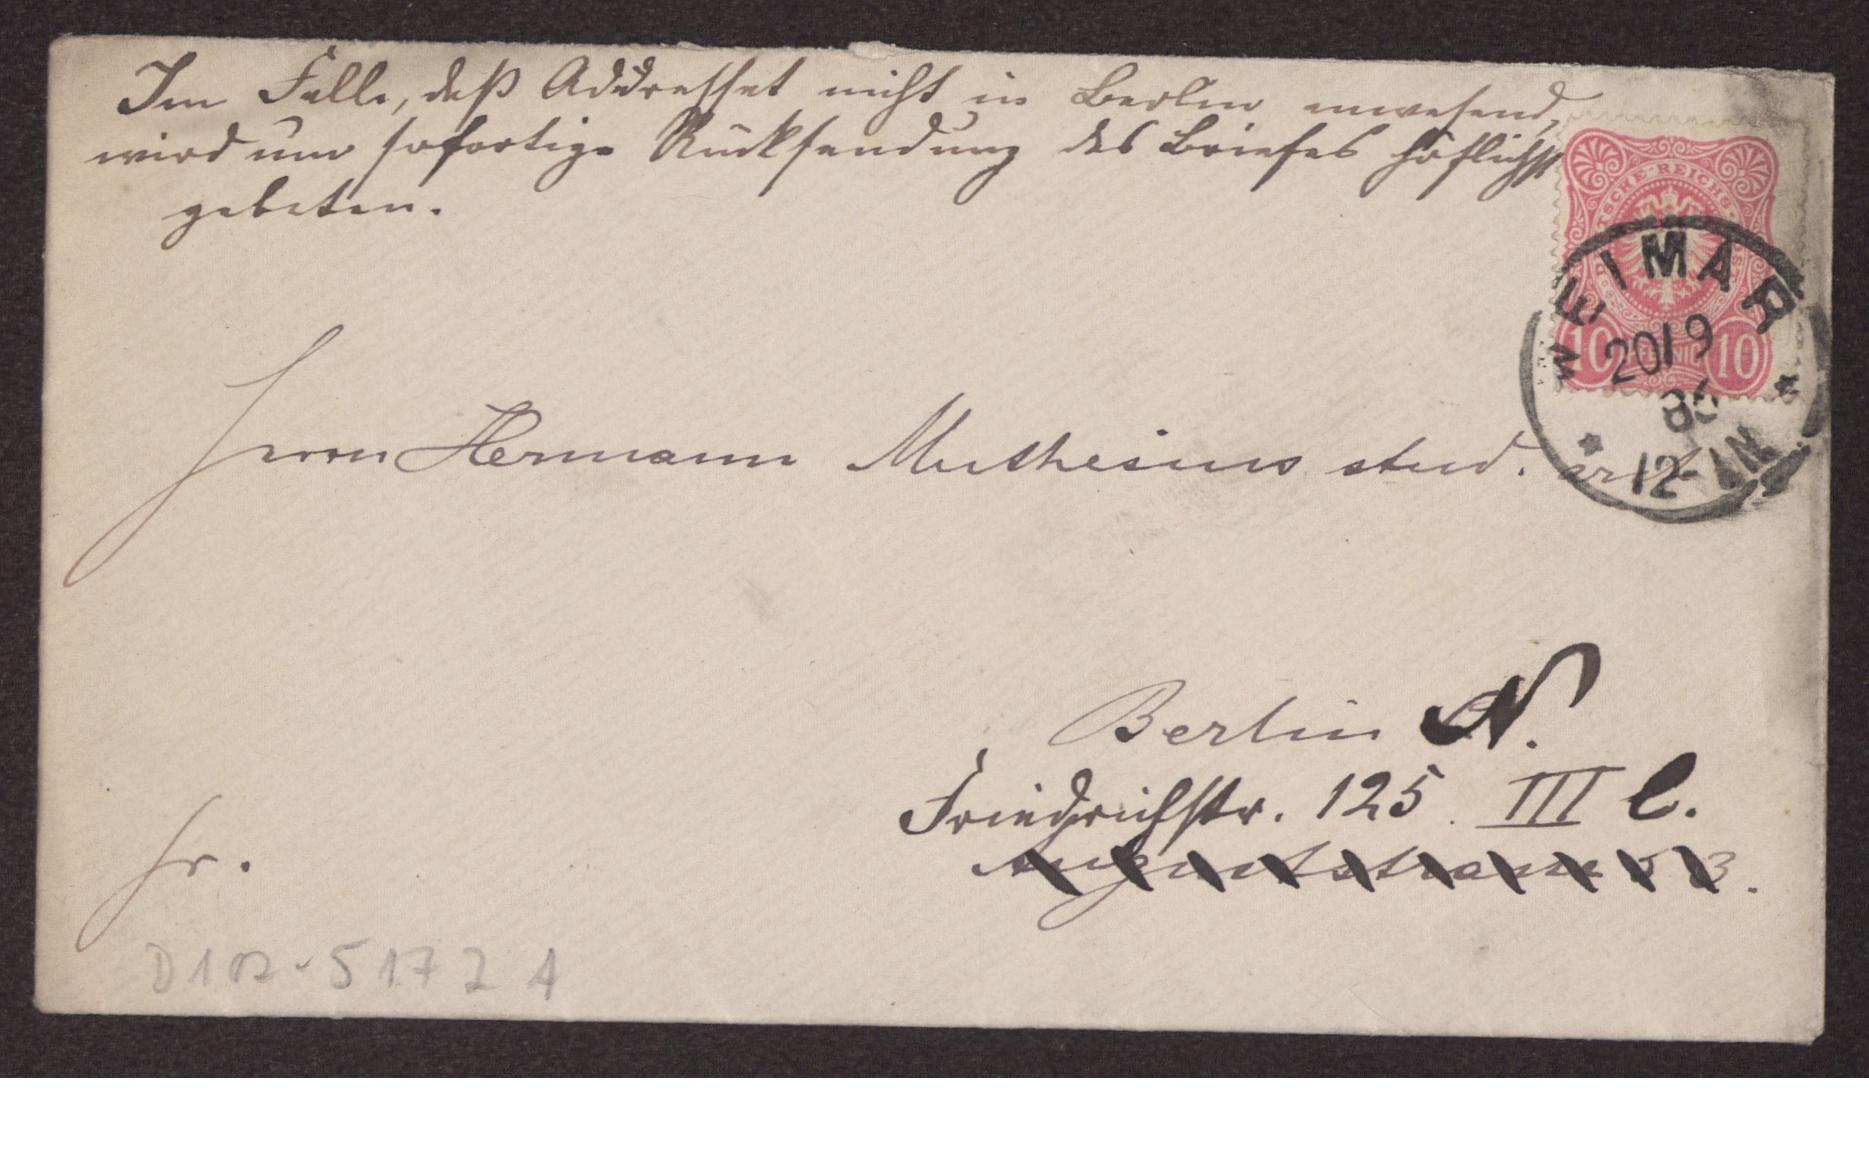 Im Falle, daß Addresset nicht in Berlin anwesend,
wird um sofortige Rücksendung des Briefes höflichst
gebeten.
DEUTSCHE REICHS
10 PFENNIG 10
WEIMAR
20/9
86
12-1N
Herrn Hermann Muthesius stud.
Berlin N.
Friedrichstr. 125. III l.
Auguststrasse 53.
fr.
D102-5172 A